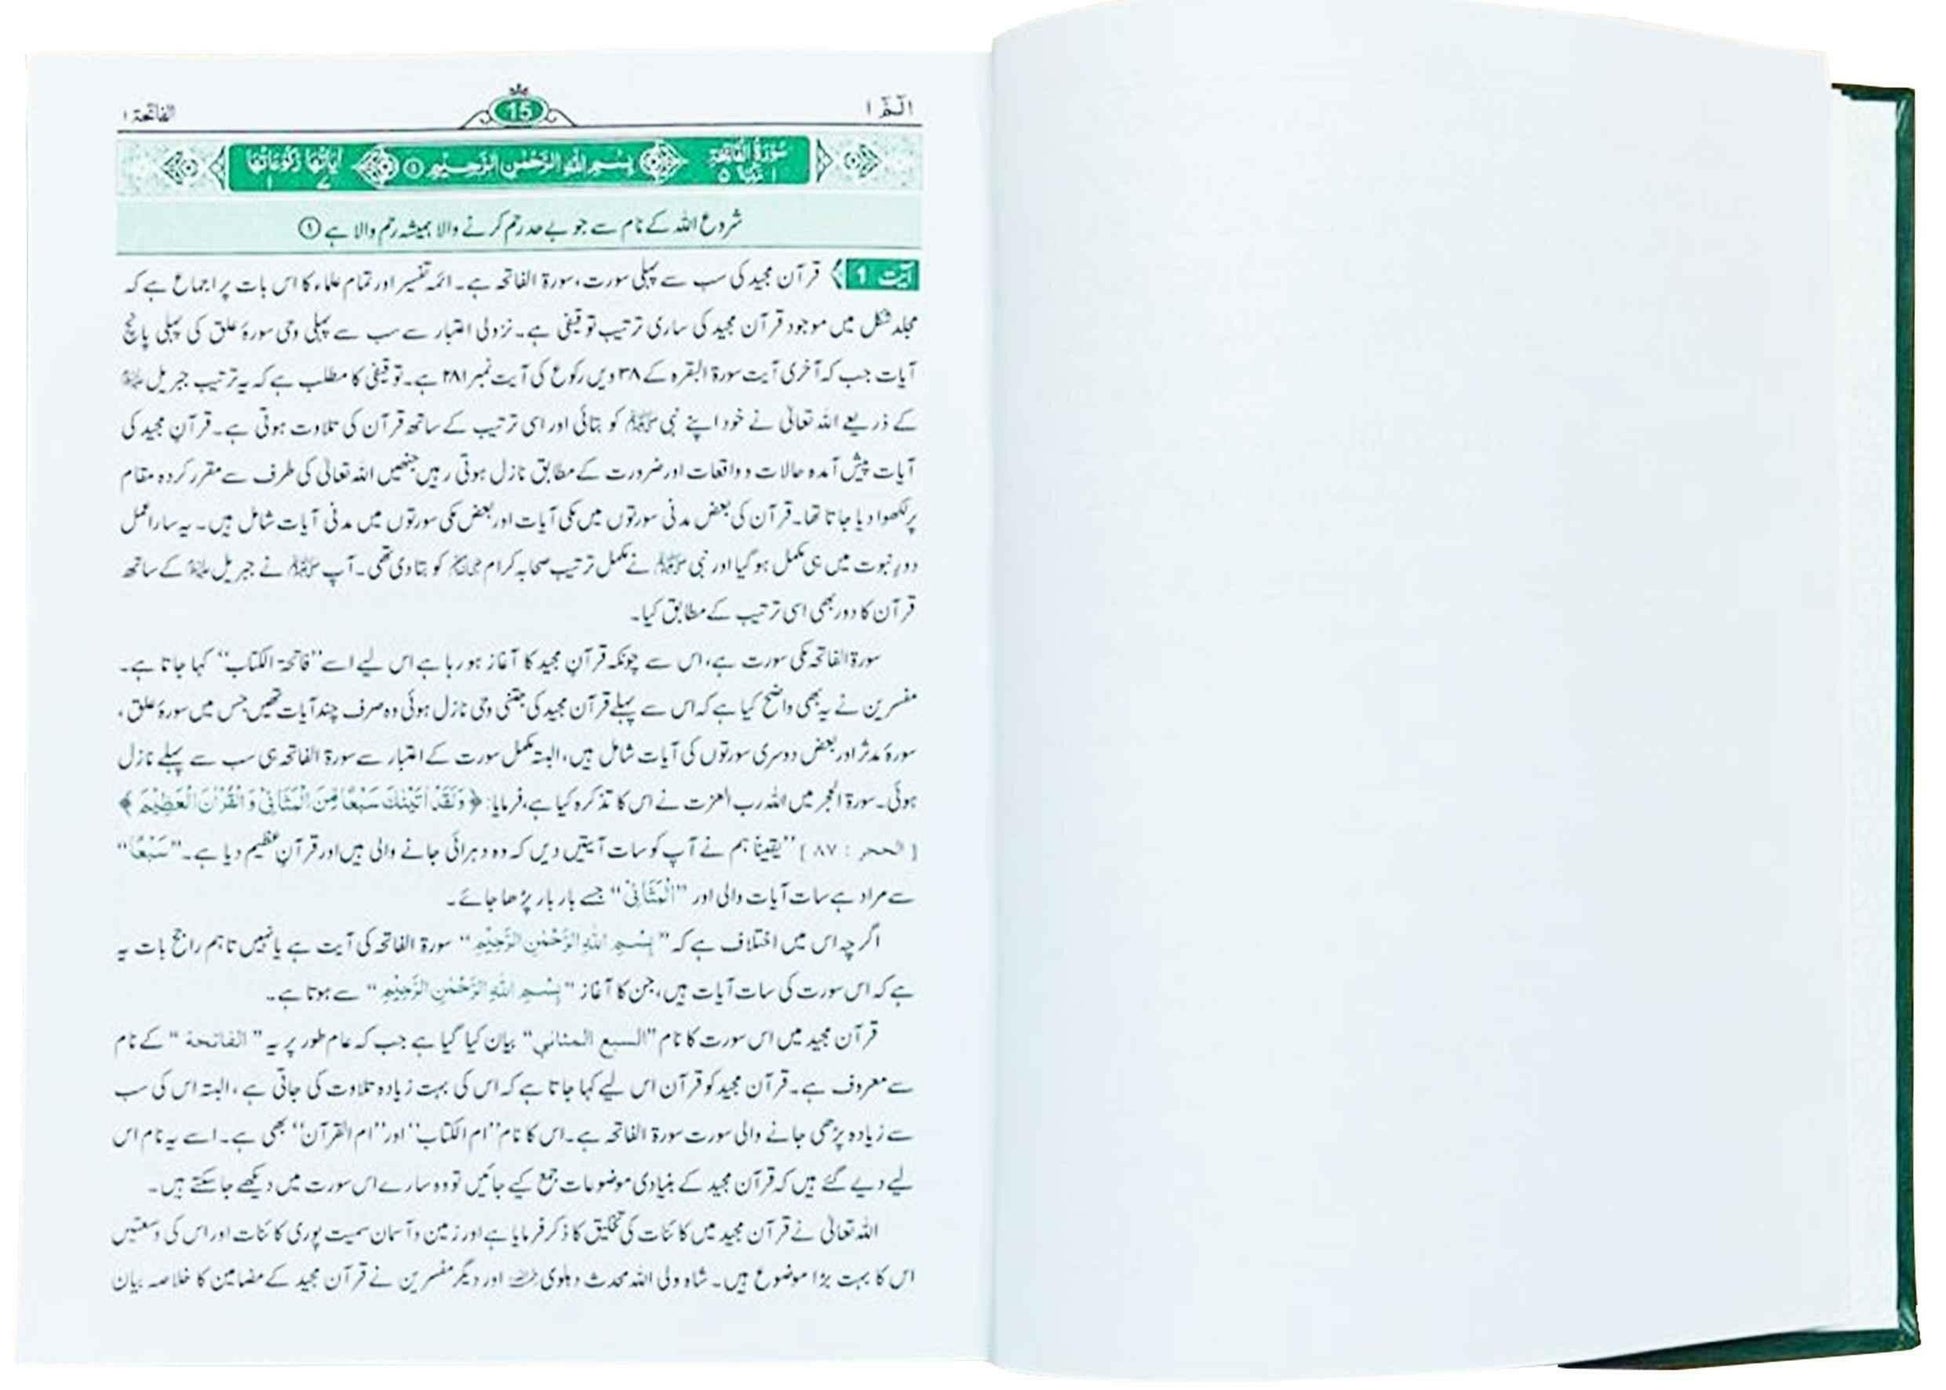 الٓمّٓ ١
15
الفاتحۃ ١
سُوْرَةُ الْفَاتِحَةِ
بِسْمِ اللّٰهِ الرَّحْمٰنِ الرَّحِيْمِ ①
اٰيَاتُهَا ٧ رُكُوْعَاتُهَا ١
شروع اللہ کے نام سے جو بے حد رحم کرنے والا ہمیشہ رحم والا ہے ①
آیت 1 قرآن مجید کی سب سے پہلی سورت، سورۃ الفاتحہ ہے۔ ائمہ تفسیر اور تمام علماء کا اس بات پر اجماع ہے کہ
مجلد شکل میں موجود قرآن مجید کی ساری ترتیب توقیفی ہے۔ نزولی اعتبار سے سب سے پہلی وحی سورۂ علق کی پہلی پانچ
آیات جب کہ آخری آیت سورۃ البقرہ کے ۳۸ ویں رکوع کی آیت نمبر ۲۸۱ ہے۔ توقیفی کا مطلب ہے کہ یہ ترتیب جبریل علیہ السلام
کے ذریعے اللہ تعالیٰ نے خود اپنے نبی ﷺ کو بتائی اور اسی ترتیب کے ساتھ قرآن کی تلاوت ہوتی ہے۔ قرآن مجید کی
آیات پیش آمدہ حالات و واقعات اور ضرورت کے مطابق نازل ہوتی رہیں جنھیں اللہ تعالیٰ کی طرف سے مقرر کردہ مقام
پر لکھوا دیا جاتا تھا۔ قرآن کی بعض مدنی سورتوں میں مکی آیات اور بعض مکی سورتوں میں مدنی آیات شامل ہیں۔ یہ سارا عمل
دورِ نبوت میں ہی مکمل ہو گیا اور نبی ﷺ نے مکمل ترتیب صحابہ کرام رضی اللہ عنہم کو بتا دی تھی۔ آپ ﷺ نے جبریل علیہ السلام کے ساتھ
قرآن کا دور بھی اسی ترتیب کے مطابق کیا۔
سورۃ الفاتحہ مکی سورت ہے، اس سے چونکہ قرآنِ مجید کا آغاز ہو رہا ہے اس لیے اسے ”فاتحۃ الکتاب“ کہا جاتا ہے۔
مفسرین نے یہ بھی واضح کیا ہے کہ اس سے پہلے قرآن مجید کی جتنی وحی نازل ہوئی وہ صرف چند آیات تھیں جس میں سورۂ علق،
سورۂ مدثر اور بعض دوسری سورتوں کی آیات شامل ہیں، البتہ مکمل سورت کے اعتبار سے سورۃ الفاتحہ ہی سب سے پہلے نازل
ہوئی۔ سورۃ الحجر میں اللہ رب العزت نے اس کا تذکرہ کیا ہے، فرمایا: ﴿وَلَقَدْ اٰتَيْنٰكَ سَبْعًا مِّنَ الْمَثَانِيْ وَالْقُرْاٰنَ الْعَظِيْمَ﴾
[الحجر : ۸۷] ”یقیناً ہم نے آپ کو سات آیتیں دیں کہ وہ دہرائی جانے والی ہیں اور قرآنِ عظیم دیا ہے۔“ ”سَبْعًا“
سے مراد ہے سات آیات والی اور ”الْمَثَانِيْ“ جسے بار بار پڑھا جائے۔
اگرچہ اس میں اختلاف ہے کہ ”بِسْمِ اللّٰهِ الرَّحْمٰنِ الرَّحِيْمِ“ سورۃ الفاتحہ کی آیت ہے یا نہیں تاہم راجح بات یہ
ہے کہ اس سورت کی سات آیات ہیں، جن کا آغاز ”بِسْمِ اللّٰهِ الرَّحْمٰنِ الرَّحِيْمِ“ سے ہوتا ہے۔
قرآن مجید میں اس سورت کا نام ”السبع المثاني“ بیان کیا گیا ہے جب کہ عام طور پر یہ ”الفاتحة“ کے نام
سے معروف ہے۔ قرآن مجید کو قرآن اس لیے کہا جاتا ہے کہ اس کی بہت زیادہ تلاوت کی جاتی ہے، البتہ اس کی سب
سے زیادہ پڑھی جانے والی سورت سورۃ الفاتحہ ہے۔ اس کا نام ”ام الکتاب“ اور ”ام القرآن“ بھی ہے۔ اسے یہ نام اس
لیے دیے گئے ہیں کہ قرآن مجید کے بنیادی موضوعات جمع کیے جائیں تو وہ سارے اس سورت میں دیکھے جا سکتے ہیں۔
اللہ تعالیٰ نے قرآن مجید میں کائنات کی تخلیق کا ذکر فرمایا ہے اور زمین و آسمان سمیت پوری کائنات اور اس کی وسعتیں
اس کا بہت بڑا موضوع ہیں۔ شاہ ولی اللہ محدث دہلوی رحمہ اللہ اور دیگر مفسرین نے قرآن مجید کے مضامین کا خلاصہ بیان